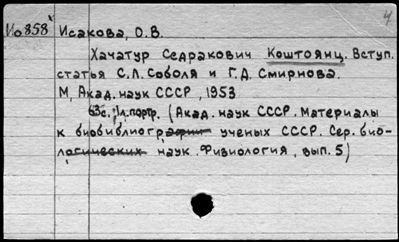 4
Ио858 Исакова, О.В.
Хачатур Седракович Коштоянц. Вступ.
статья С.Л. Соболя и Г.Д. Смирнова.
М, Акад. наук СССР, 1953
63с. 1л. портр. (Акад. наук СССР. Материалы
к биобиблиографии ученых СССР. Сер. био-
логических наук. Физиология, вып. 5)